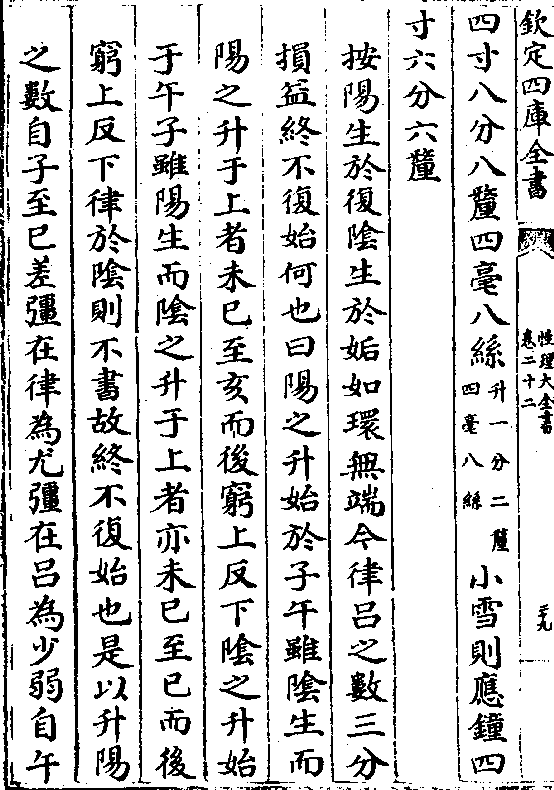 欽定四庫全書
性理大全書
卷二十二
三十九
四寸八分八釐四毫八絲升一分二釐四毫八絲小雪則應鐘四
寸六分六釐
按陽生於復陰生於姤如環無端今律呂之數三分
損益終不復始何也曰陽之升始於子午雖陰生而
陽之升于上者未已至亥而後窮上反下陰之升始
于午子雖陽生而陰之升于上者亦未已至巳而後
窮上反下律於陰則不書故終不復始也是以升陽
之數自子至巳差彊在律為尤彊在呂為少弱自午